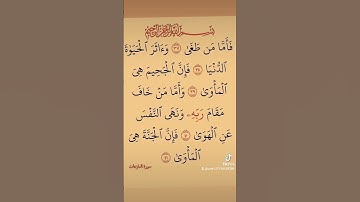 بسم الله الرحمن الرحيم
فَأَمَّا مَن طَغَىٰ ٣٧ وَءَاثَرَ ٱلْحَيَوٰةَ
ٱلدُّنْيَا ٣٨ فَإِنَّ ٱلْجَحِيمَ هِىَ
ٱلْمَأْوَىٰ ٣٩ وَأَمَّا مَنْ خَافَ
مَقَامَ رَبِّهِۦ وَنَهَى ٱلنَّفْسَ
عَنِ ٱلْهَوَىٰ ٤٠ فَإِنَّ ٱلْجَنَّةَ هِىَ
ٱلْمَأْوَىٰ ٤١
سورة النازعات